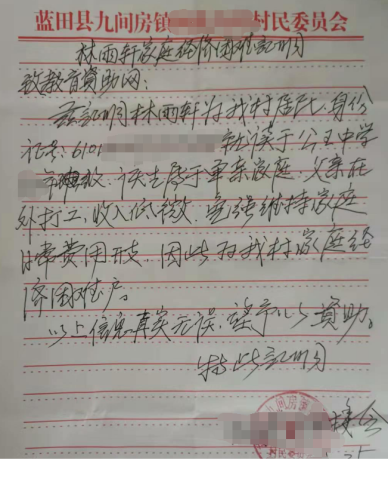 蓝田县九间房镇村民委员会
林雨轩家庭经济困难证明
致教育资助网：
兹证明林雨轩为我村居民，身份
证号：6101 就读于公王中学
该生属于单亲家庭，父亲在
外打工，收入低微，勉强维持家庭
日常费用开支，因此为我村家庭经
济困难户。
以上信息真实无误，望予以资助。
特此证明
九间房